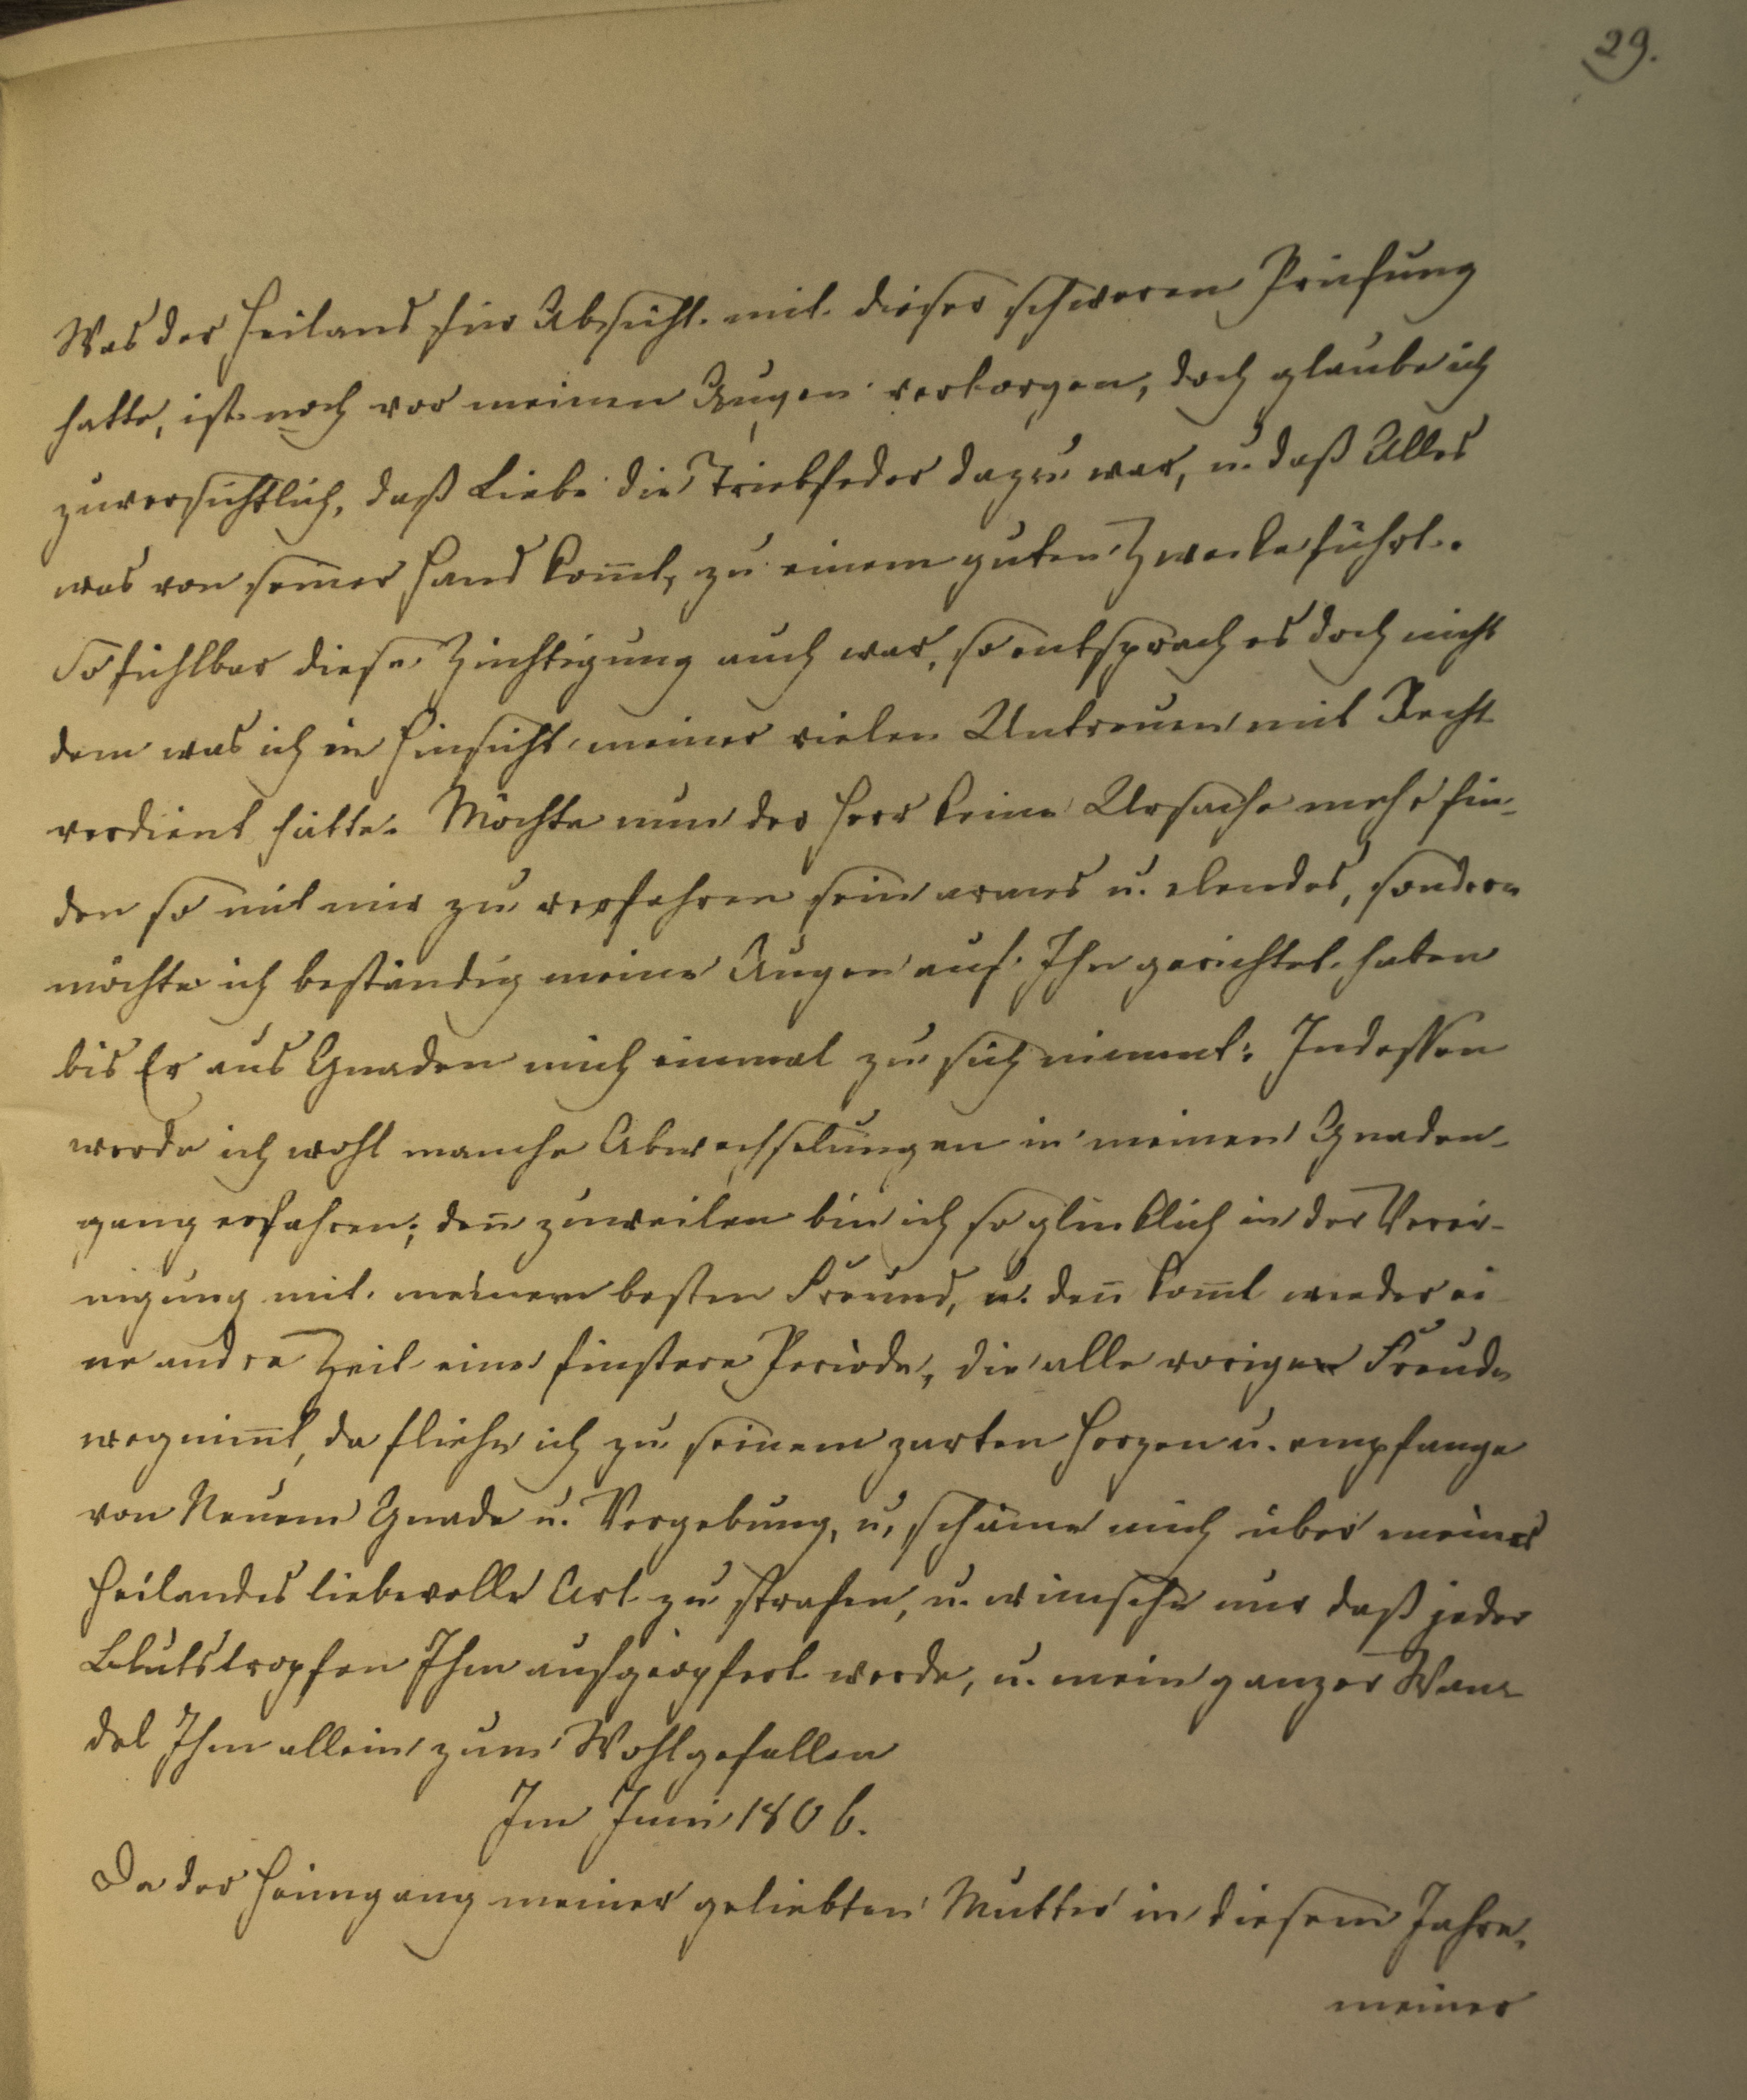 29.
Was der Heiland für Absicht mit dieser schweren Prüfung
hatte, ist noch vor meinen Augen verborgen, doch glaube ich
zuversichtlich, daß Liebe die Triebfeder dazu war, u. daß Alles
was von seiner Hand kom̄t, zu einem guten Zwecke führt.
So fühlbar diese Züchtigung auch war, so entsprach es doch nicht
dem was ich in Hinsicht meiner vielen Untreuen mit Recht
verdient hätte. Möchte nun der Herr keine Ursache mehr fin-
den so mit mir zu verfahren sein armes u. elendes, sondern
möchte ich beständig meine Augen auf Ihn gerichtet haben
bis Er aus Gnaden mich einmal zu sich nimmt: Indessen
werde ich wohl manche Abwechselungen in meinen Gnaden-
gang erfahren; den̄ zuweilen bin ich so glücklich in der Verei-
nigung mit meinem besten Freund, u. den̄ kom̄t wieder ei
ne andre Zeit eine finstere Periode, die alle vorigen Freude
wegnim̄t, da fliehe ich zu seinem zarten Herzen u. empfange
von Neuem Gnade u. Vergebung, u. schäme mich über meines
Heilandes liebevolle Art zu strafen, u. wünsche nur daß jeder
Blutstropfen Ihm aufgeopfert werde, u. mein ganzer Wan-
del Ihm allein zum Wohlgefallen
Im Juni 1806.
Da der Heimgang meiner geliebten Mutter in diesem Jahre,
meiner